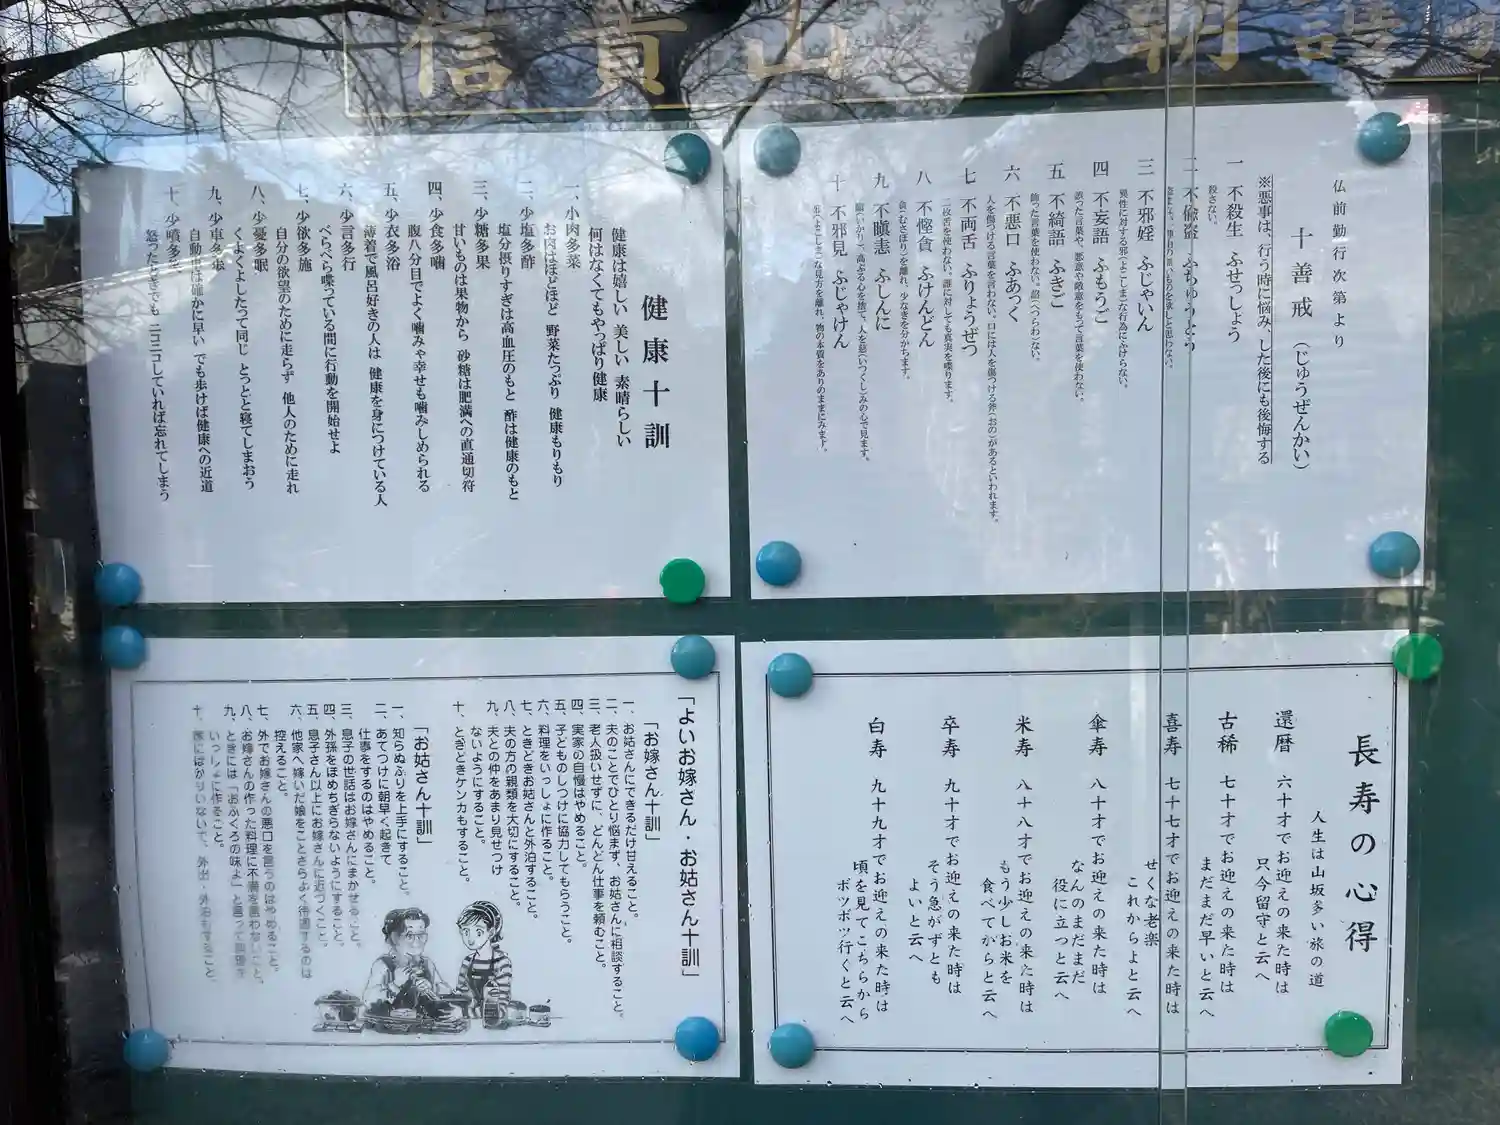 信貴山
朝護
仏前勤行次第より
十善戒（じゅうぜんかい）
※悪事は、行う時に悩み、した後にも後悔する
一 不殺生 ふせっしょう
殺さない。
二 不偸盗 ふちゅうとう
三 不邪婬 ふじゃいん
異性に対する邪（よこしま）な行為にふけらない。
四 不妄語 ふもうご
誤った言葉や、悪意や敵意をもって言葉を使わない。
五 不綺語 ふきご
飾った言葉を使わない。諂（へつらわ）ない。
六 不悪口 ふあっく
人を傷つける言葉を言わない。口には人を傷つける斧（おの）があるといわれます。
七 不両舌 ふりょうぜつ
二枚舌を使わない。誰に対しても真実を喋ります。
八 不慳貪 ふけんどん
貪（むさぼり）を離れ、少なきを分かちます。
九 不瞋恚 ふしんに
瞋（いかり）で、高ぶる心を捨て、人を慈（いつくしみ）の心で見ます。
十 不邪見 ふじゃけん
邪（よこしま）な見方を離れ、物の本質をありのままにみます。
健康十訓
健康は嬉しい 美しい 素晴らしい
何はなくてもやっぱり健康
一、小肉多菜
お肉はほどほど 野菜たっぷり 健康もりもり
二、少塩多酢
塩分摂りすぎは高血圧のもと 酢は健康のもと
三、少糖多果
甘いものは果物から 砂糖は肥満への直通切符
四、少食多噛
腹八分目でよく噛みや幸せも噛みしめられる
五、少衣多浴
薄着で風呂好きの人は 健康を身につけている人
六、少言多行
べらべら喋っている間に行動を開始せよ
七、少欲多施
自分の欲望のために走らず 他人のために走れ
八、少憂多眠
くよくよしたって同じ とっとと寝てしまおう
九、少車多歩
自動車は確かに早い でも歩けば健康への近道
十、少噴多笑
怒ったときでも ニコニコしていれば忘れてしまう
長寿の心得
人生は山坂多い旅の道
還暦 六十才でお迎えの来た時は
只今留守と云へ
古稀 七十才でお迎えの来た時は
まだまだ早いと云へ
喜寿 七十七才でお迎えの来た時は
せくな老楽
これからよと云へ
傘寿 八十才でお迎えの来た時は
なんのまだまだ
役に立つと云へ
米寿 八十八才でお迎えの来た時は
もう少しお米を
食べてからと云へ
卒寿 九十才でお迎えの来た時は
そう急がずとも
よいと云へ
白寿 九十九才でお迎えの来た時は
頃を見てこちらから
ボツボツ行くと云へ
「よいお嫁さん・お姑さん十訓」
「お嫁さん十訓」
一、お姑さんにできるだけ甘えること。
二、夫のことでひとり悩まず、お姑さんに相談すること。
三、老人扱いせずに、どんどん仕事を頼むこと。
四、実家の自慢はやめること。
五、子どものしつけに協力してもらうこと。
六、料理をいっしょに作ること。
七、ときどきお姑さんと外泊すること。
八、夫の方の親類を大切にすること。
九、夫との仲をあまり見せつけ
ないようにすること。
十、ときどきケンカもすること。
「お姑さん十訓」
一、知らぬふりを上手にすること。
二、あてつけに朝早く起きて
仕事をするのはやめること。
三、息子の世話はお嫁さんにまかせること。
四、外孫をほめちぎらないようにすること。
五、息子さん以上にお嫁さんに近づくこと。
六、他家へ嫁いだ娘をことさらよく待遇するのは
控えること。
七、外でお嫁さんの悪口を言うのはやめること。
八、お嫁さんの作った料理に不満を言わないこと。
九、ときには「おふくろの味よ」と言って料理を
いっしょに作ること。
十、家にばかりいないで、外出・外泊もすること。